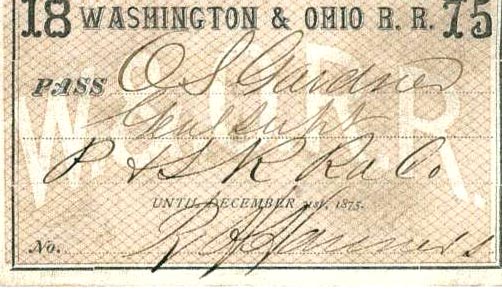 18 WASHINGTON & OHIO R. R. 75
W. & O. R. R.
PASS O S Gardner
Genl Supt
P & S K R R Co
UNTIL DECEMBER 31st, 1875.
No.